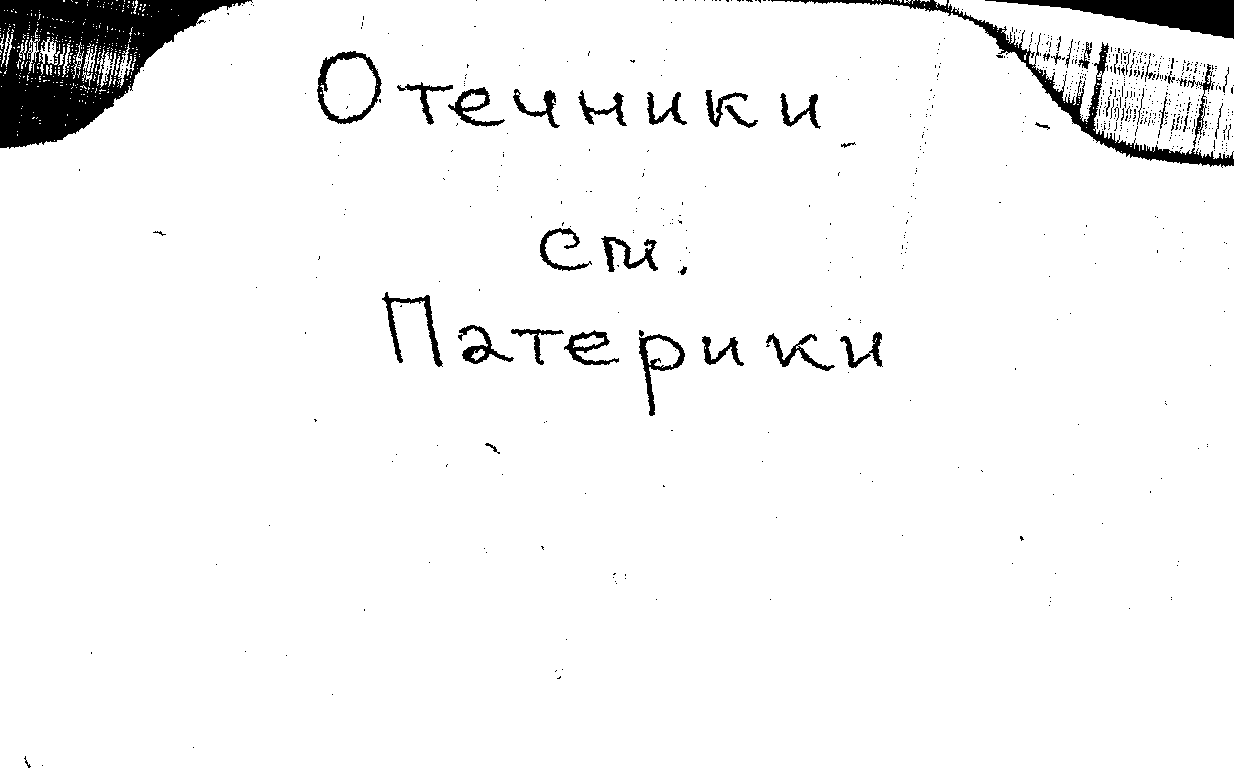 Отечники
см.
Патерики